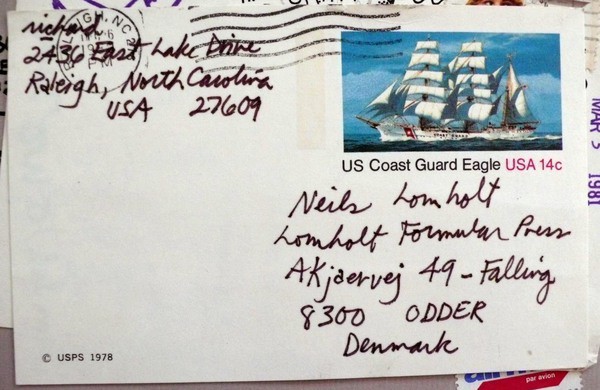 richard
2436 East Lake Drive
Raleigh, North Carolina
USA 27609
US Coast Guard Eagle USA 14c
Neils Lomholt
Lomholt Formular Press
AKjaervej 49 - Falling
8300 ODDER
Denmark
© USPS 1978
MAR
1981
par avion